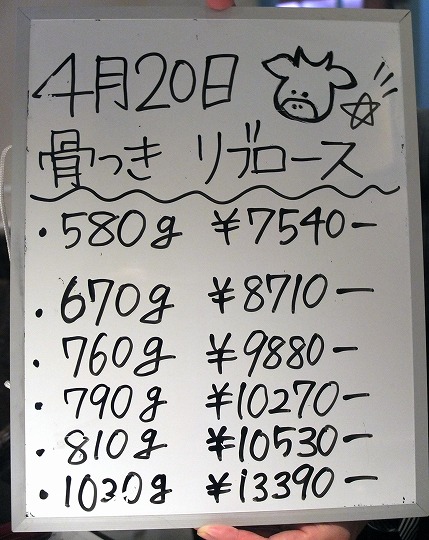 4月20日
骨つき リブロース
・580g ¥7540ー
・670g ¥8710ー
・760g ¥9880ー
・790g ¥10270ー
・810g ¥10530ー
・1030g ¥13390ー